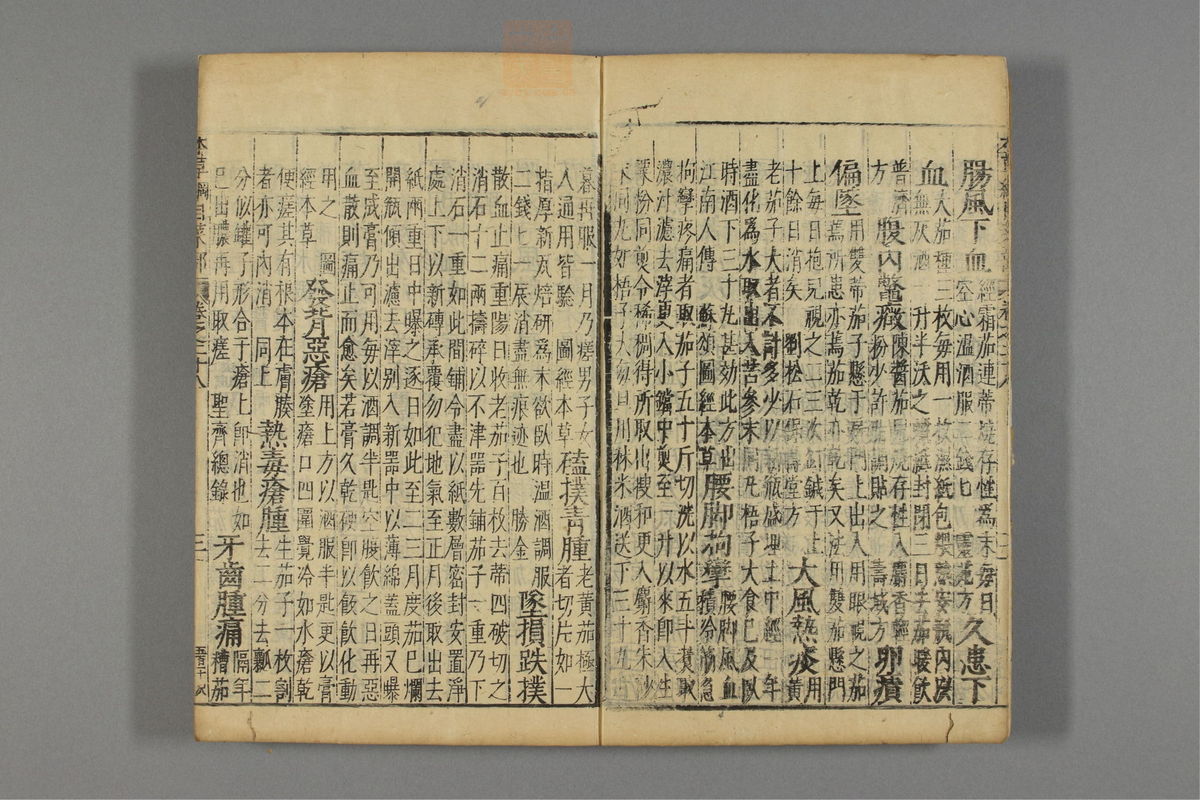 腸風下血 經霜茄連蒂燒存性爲末每日空心溫酒服二錢匕 靈苑方 久患下
血 大茄種三枚每用一枚濕紙包煨熟安瓶內以
無灰酒一升半沃之蠟紙封閉三日去茄暖飲
普濟方 腹內鱉癥 陳醬茄兒燒存性入麝香輕粉少許脂調貼之 壽域方 卵㿉
偏墜 用雙蒂茄子懸于房門上出入用眼視之茄蔫所患亦蔫茄乾亦乾矣又法用雙茄懸門
上每日抱兒視之二三次釘鍼于上十餘日消矣 劉松石保壽堂方 大風熱痰 用黃
老茄子大者不計多少以新瓶盛埋土中經一年
盡化爲水取出入苦參末同丸梧子大食已及臥
時酒下三十丸甚効此方出
江南人傳 蘇頌圖經本草 腰脚拘攣 腰脚風血積冷筋急
拘攣疼痛者取茄子五十斤切洗以水五斗煮取
濃汁濾去滓更入小鐺中煎至一升以來卽入生
粟粉同煎令稀稠得所取出搜和更入麝香朱沙
末同丸如梧子大每旦用秫米酒送下三十丸
暮再服一月乃瘥男子女人通用皆驗 圖經本草 磕撲青腫 老黃茄極大者切片如一
指厚新瓦焙研爲末欲臥時溫酒調服
二錢匕一夜消盡無痕迹也 勝金 墜損跌撲
散血止痛重陽日收老茄子百枚去蒂四破切之
消石十二兩擣碎以不津器先鋪茄子一重乃下
消石一重如此間鋪令盡以紙數層密封安置淨
處上下以新磚承覆勿犯地氣至正月後取出去
紙兩重日中曝之逐日如此至二三月度茄已爛
開瓶傾出濾去滓別入新器中以薄綿蓋頭又曝
至成膏乃可用每以酒調半匙空腹飲之日再惡
血散則痛止而愈矣若膏久乾硬卽以飯飲化動
用之 圖經本草 發背惡瘡 用上方以酒服半匙更以膏塗瘡口四圍覺冷如水瘡乾
便瘥其有根本在膚腠者亦可內消 同上 熱毒瘡腫 生茄子一枚割去二分去瓤二
分似罐子形合于瘡上卽消也如
已出膿再用取瘥 聖濟總錄 牙齒腫痛 隔年糟茄